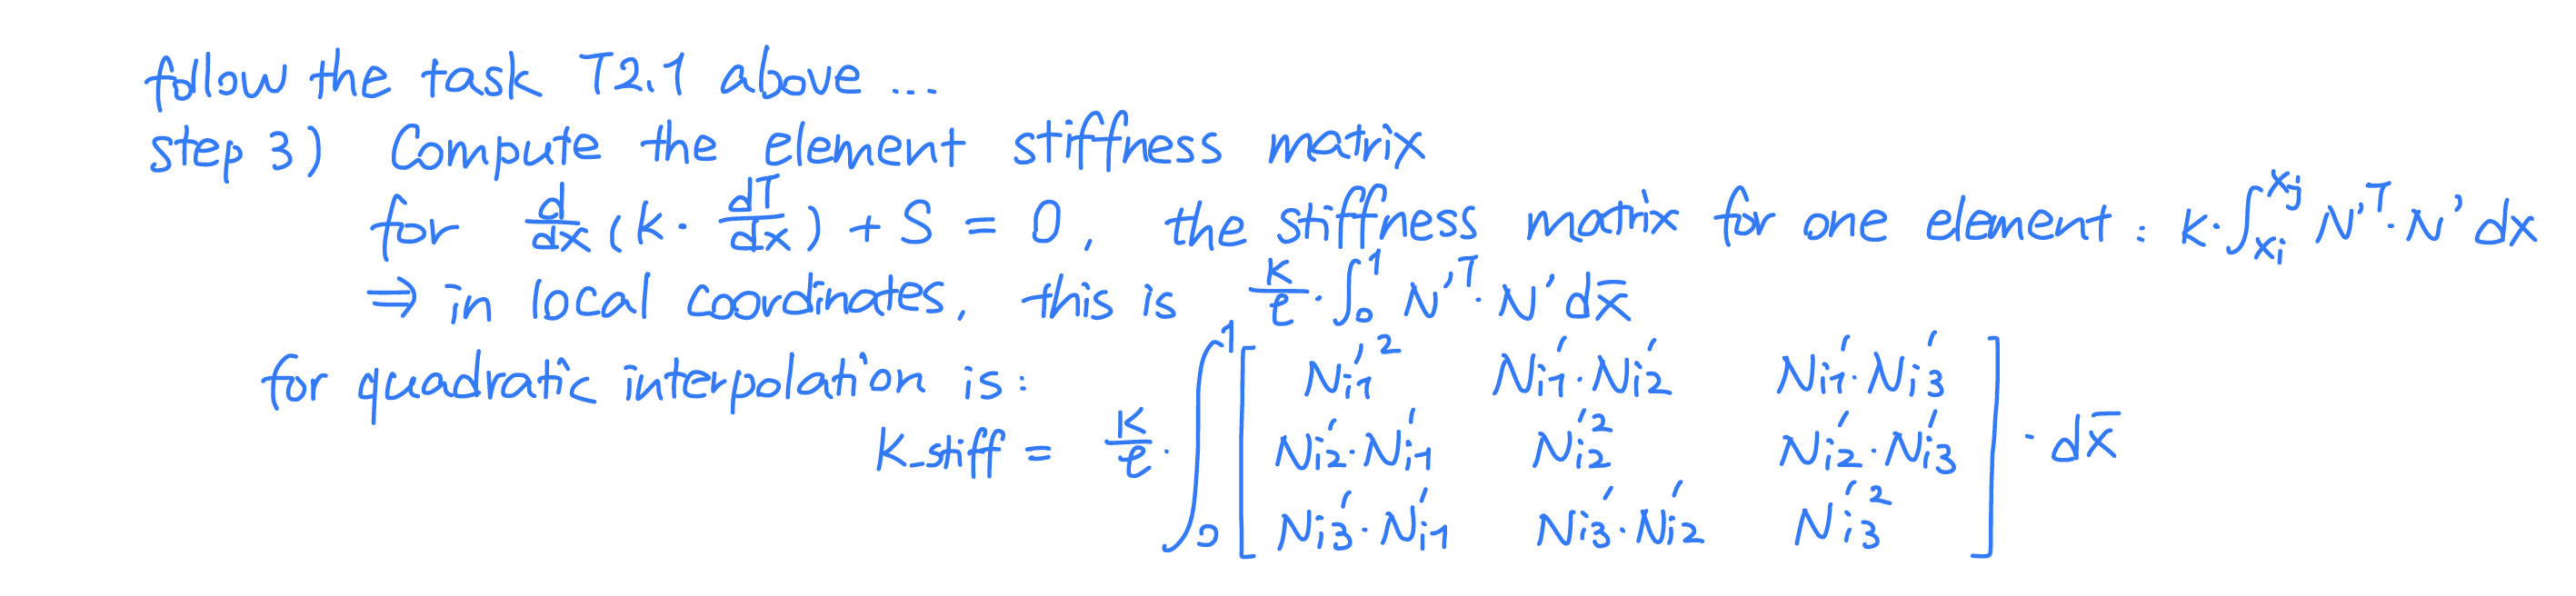 follow the task T2.1 above ...
step 3) Compute the element stiffness matrix
for d/dx (k · dT/dx) + S = 0, the stiffness matrix for one element : k · ∫_{xi}^{xj} N'^T · N' dx
⇒ in local coordinates, this is k/ℓ · ∫_0^1 N'^T · N' dx̄
for quadratic interpolation is :
K_stiff = k/ℓ · ∫_0^1 [ N'i1² N'i1 · N'i2 N'i1 · N'i3
N'i2 · N'i1 N'i2² N'i2 · N'i3
N'i3 · N'i1 N'i3 · N'i2 N'i3² ] · dx̄